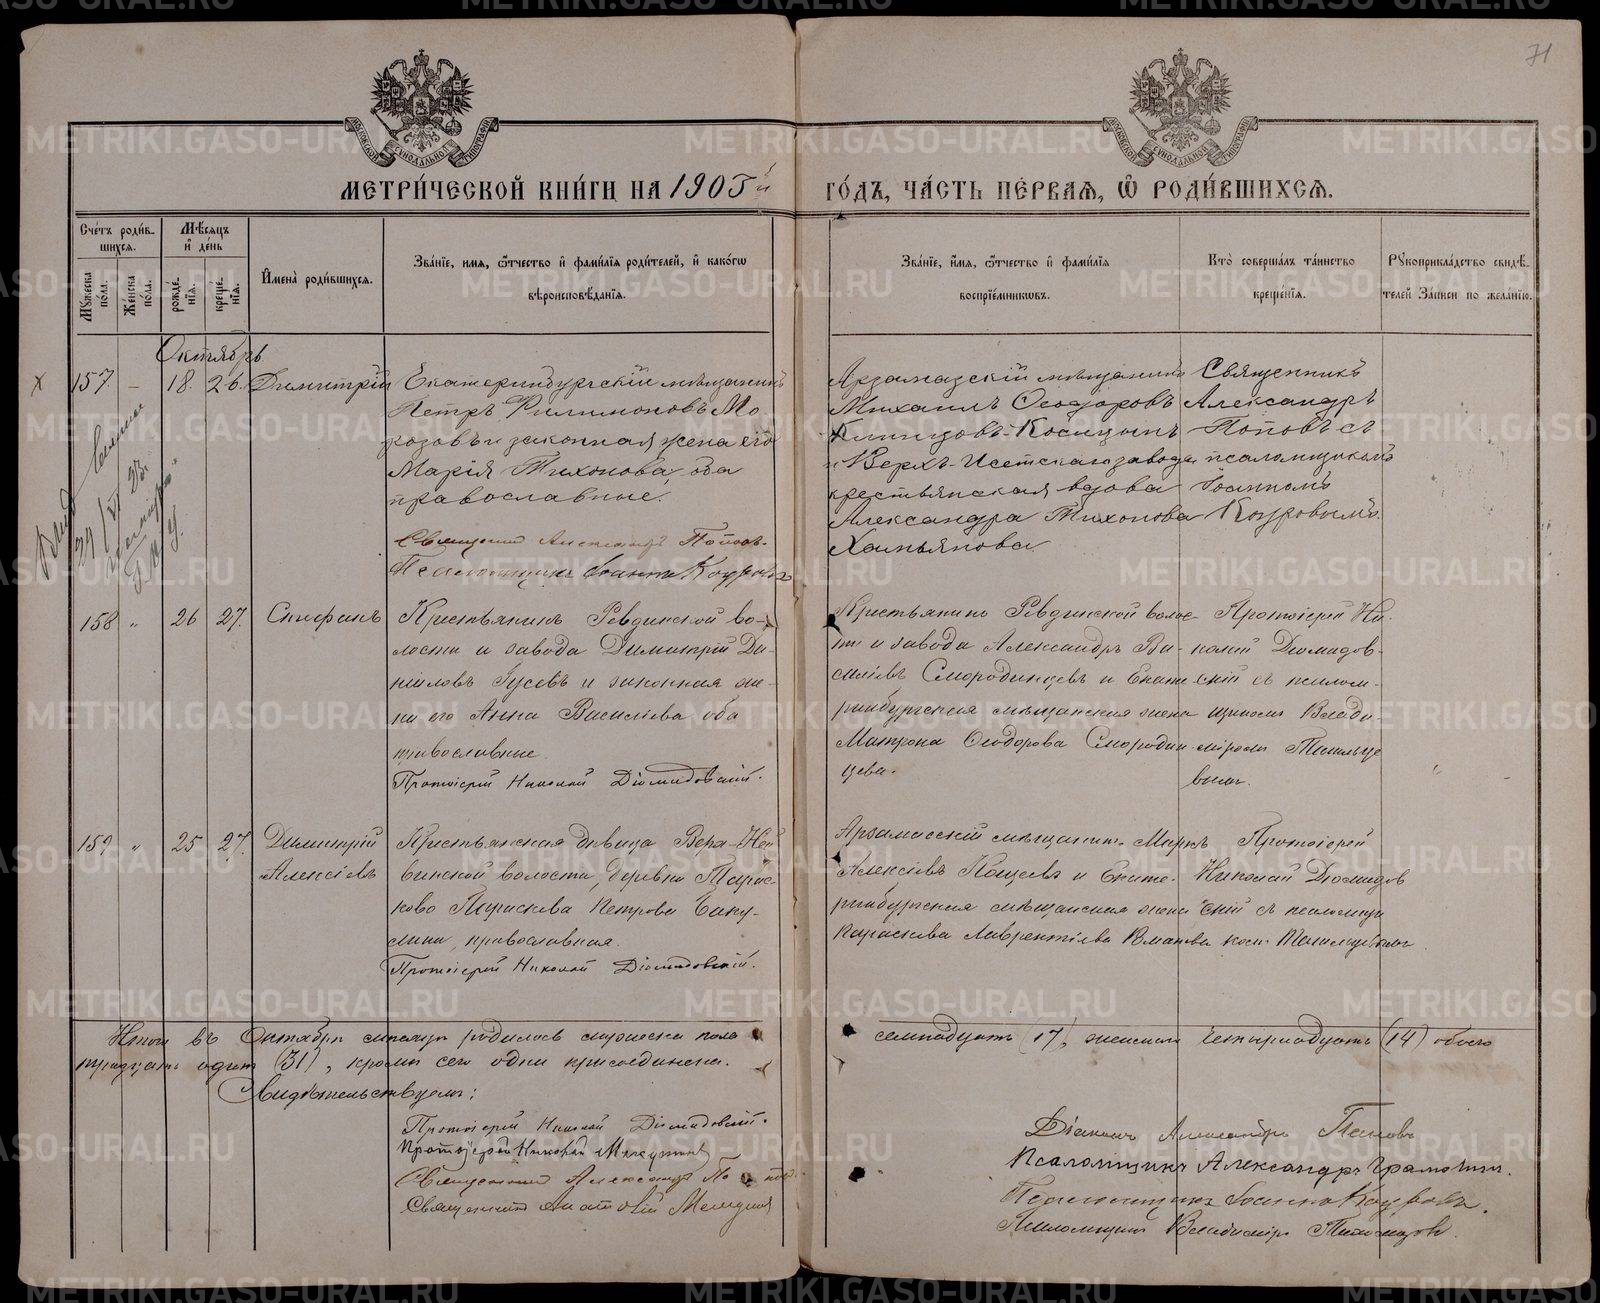 71
МОСКОВСКОЙ СУНОДАЛЬНОЙ ТИПОГРАФІИ
МОСКОВСКОЙ СУНОДАЛЬНОЙ ТИПОГРАФІИ
МЕТРИ́ЧЕСКОЙ КНИ́ГИ НА 1905й ГО́ДЪ, ЧА́СТЬ ПЕ́РВАѦ, Ѽ РОДИ́ВШИХСѦ.
Сче́тъ роди́вшихсѧ.
Мꙋ́жеска по́ла.
Же́нска по́ла.
Мѣ́сѧцъ и҆ де́нь
рожде́нїѧ.
креще́нїѧ.
И҆мена̀ роди́вшихсѧ.
Зва́нїе, имѧ, ѻ҆́тчество и҆ фами́лїѧ роди́телей, и҆ како́гѡ вѣроисповѣ́данїѧ.
Зва́нїе, и҆́мѧ, ѻ҆́тчество и҆ фами́лїѧ воспрїе́мникѡвъ.
Кто̀ соверша́лъ та́инство креще́нїѧ.
Рꙋкоприкла́дство свидѣ́телей За́писи по жела́нїю.
Октябрь
157 – 18. 26. Димитрій
Екатеринбургскій мѣщанинъ
Петръ Филимоновъ Мо-
козовъ и законная жена его
Марія Тихонова, оба
православные.
Священникъ Александръ Поповъ.
Псаломщикъ Іоаннъ Коуровъ
Арзамазскій мѣщанинъ
Михаилъ Ѳеодоровъ
Косицынъ
и Верхъ-Исетскаго завода
крестьянская вдова
Александра Тихонова
Хамьянова
Священникъ
Александръ
Поповъ съ
псаломщикомъ
Іоанномъ
Коуровымъ.
158 „ 26 27. Стефанъ
Крестьянинъ Ревдинской во-
лости и завода Димитрій Да-
ниловъ Гусевъ и законная же-
на его Анна Василіева оба
православные.
Протоіерей Николай Діомидовскій.
Крестьянинъ Ревдинской волос-
ти и завода Александръ Ва-
силіевъ Смородинцевъ и Екате-
ринбургская мѣщанская жена
Матрона Ѳеодорова Смородин-
цева.
Протоіерей Ни-
колай Діомидов-
скій съ псалом-
щикомъ Влади-
міромъ Топильце
вымъ.
159 „ 25 27. Димитрій
Алексіевъ
Крестьянская дѣвица Верх-Ней
винской волости, деревни Тарас-
ково Параскева Петрова Баку-
лина, православная.
Протоіерей Николай Діомидовскій.
Арзамасскій мѣщанинъ Маркъ
Алексіевъ Кощеевъ и Екате-
ринбургская мѣщанская жена
Параскева Лаврентіева
Протоіерей
Николай Діомидов
скій съ псаломщи
комъ Топильцевымъ
Итого въ Октябрѣ мѣсяцѣ родилось мужеска пола семнадцать (17), женска четырнадцать (14) обоего
тридцать одинъ (31), кромѣ сего одна присоединена.
Свидѣтельствуемъ:
Протоіерей Николай Діомидовскій.
Протоіерей Николай
Священникъ Александръ Поповъ
Священникъ Анатолій
Діаконъ Александръ Поповъ
Псаломщикъ Александръ
Псаломщикъ Іоаннъ Коуровъ.
Псаломщикъ Владиміръ Топильцевъ.
METRIKI.GASO-URAL.RU